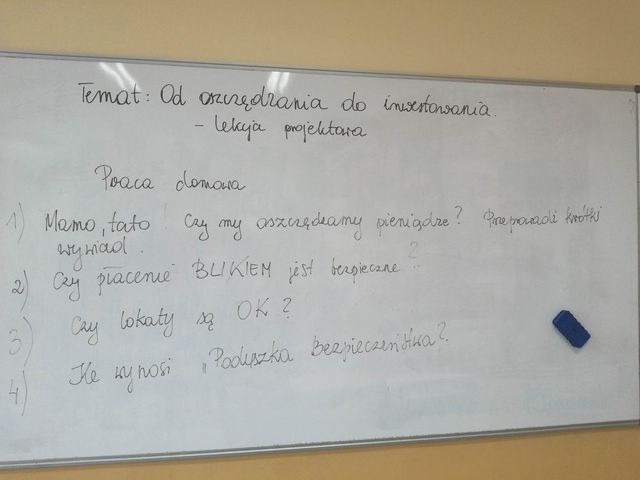 Temat: Od oszczędzania do inwestowania.
- lekcja projektowa
Praca domowa
1) Mamo, tato! Czy my oszczędzamy pieniądze? Przeprowadź krótki
wywiad.
2) Czy płacenie BLIKIEM jest bezpieczne?
3) Czy lokaty są OK?
4) Ile wynosi „Poduszka Bezpieczeństwa?